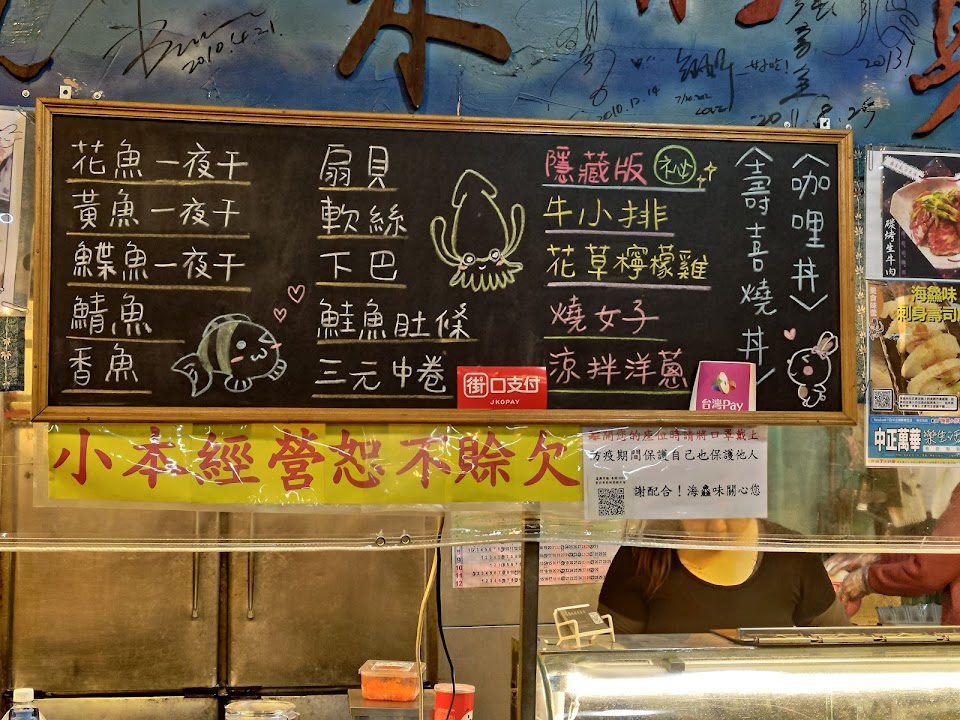 2010.4.21.
2010.12.14
7/20.202
LOVE
一好吃!
2013
花魚一夜干
黃魚一夜干
鰈魚一夜干
鯖魚
香魚
扇貝
軟絲
下巴
鮭魚肚條
三元中卷
隱藏版 祕
牛小排
花草檸檬雞
燒女子
涼拌洋蔥
〈壽喜燒丼〉
〈咖哩丼〉
街口支付
JKOPAY
台灣Pay
碳烤生牛肉
海蠡味
刺身壽司
中正萬華 樂生活
小本經營恕不賒欠
離開您的座位時請將口罩戴上
防疫期間保護自己也保護他人
謝配合!海蠡味關心您